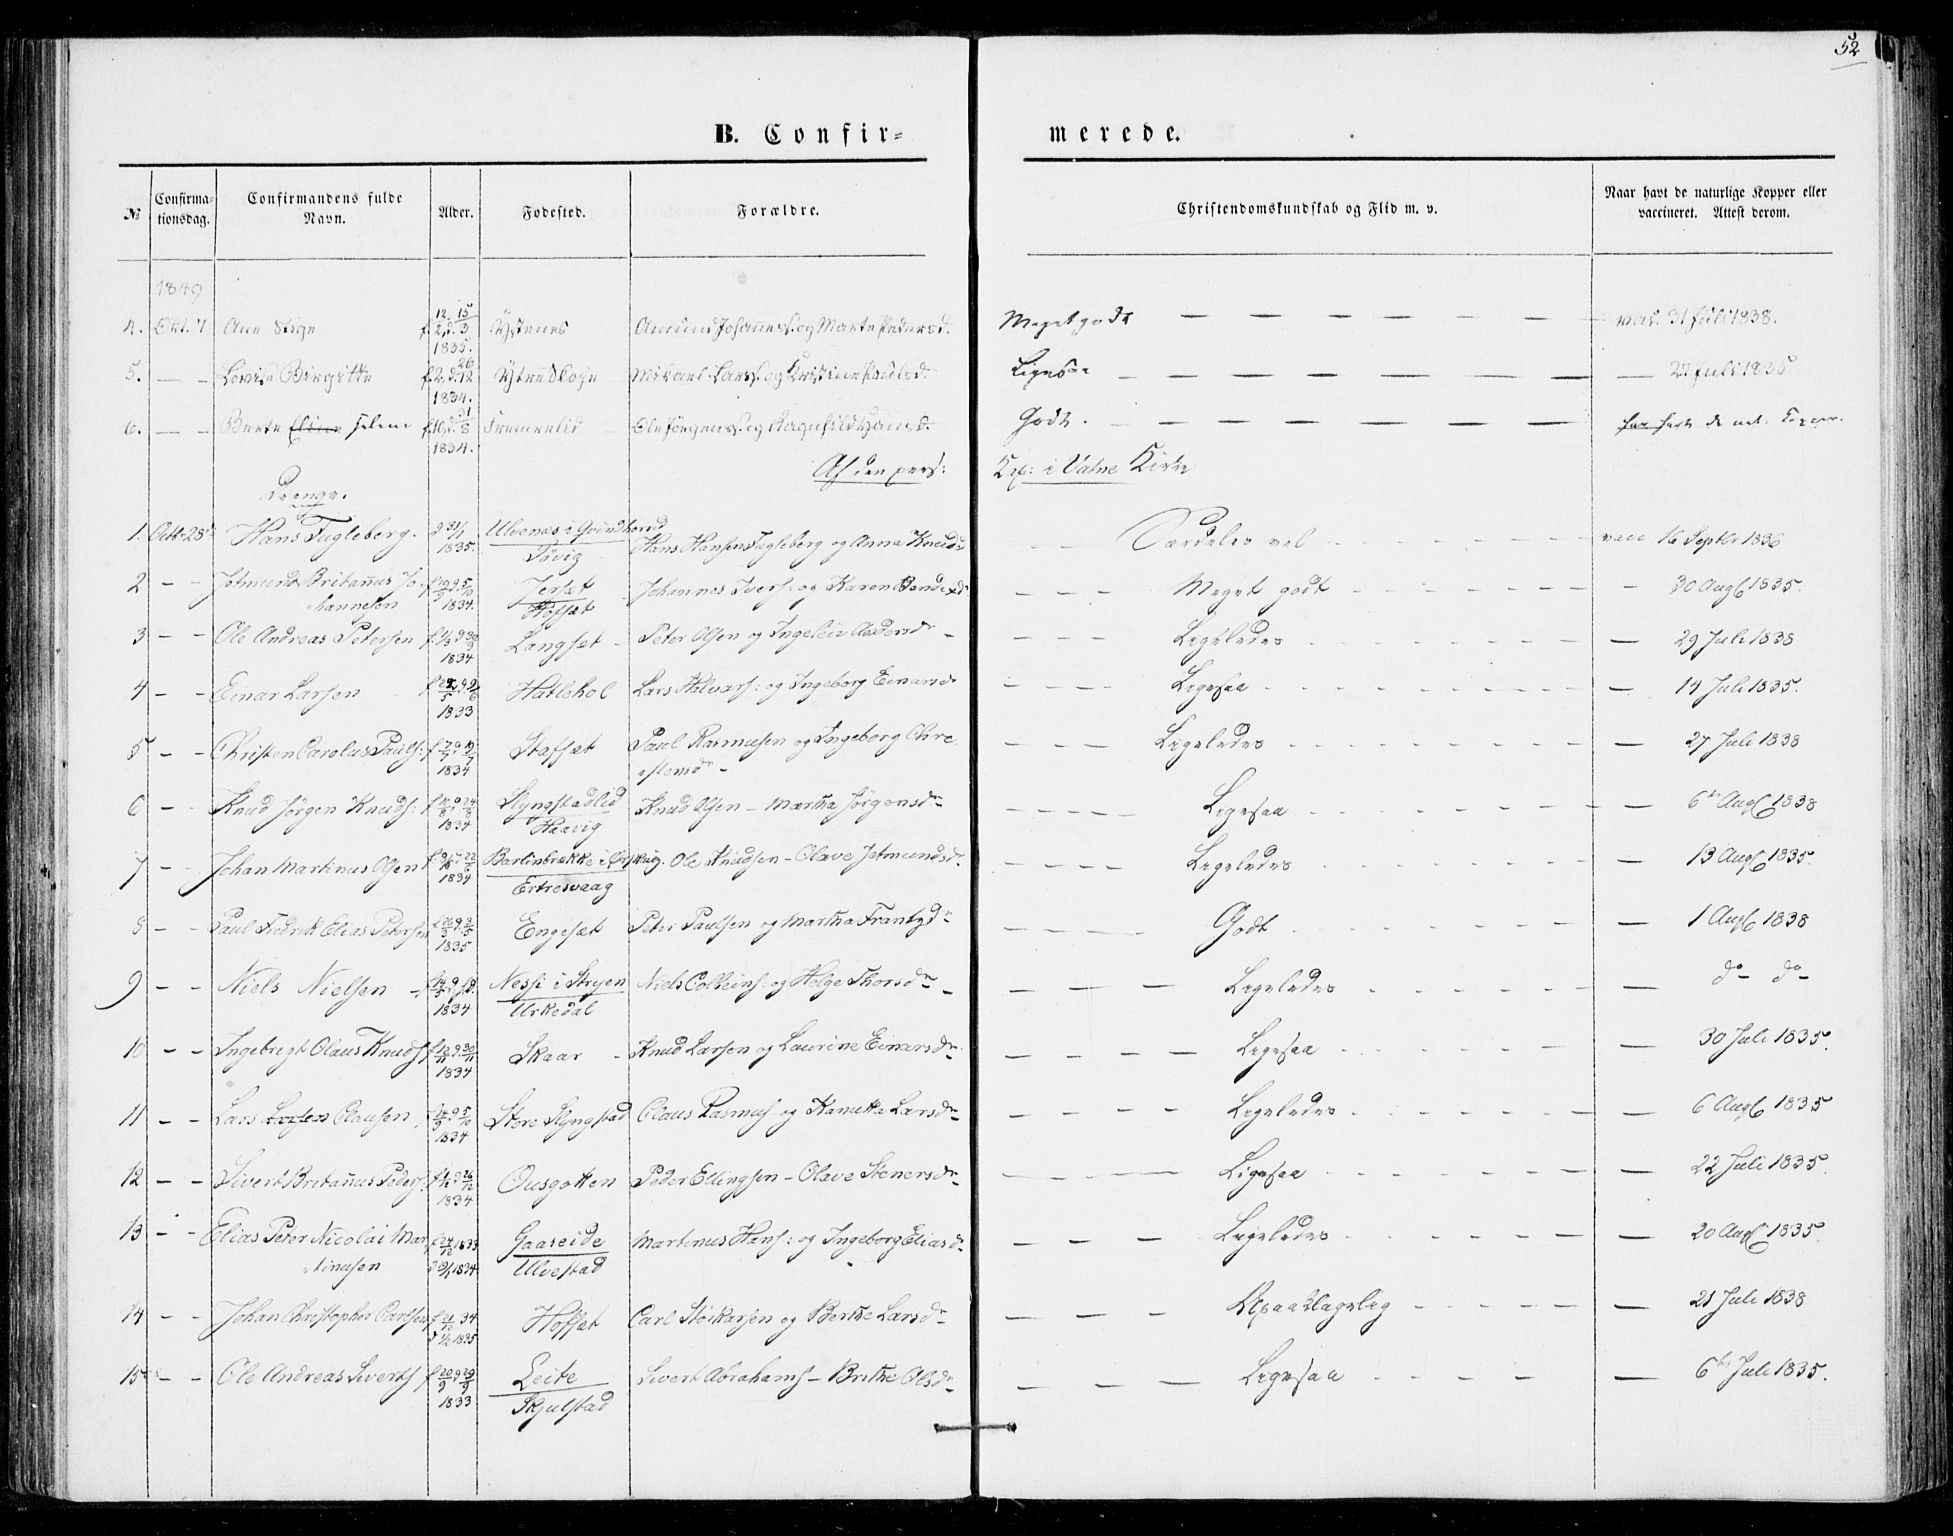 52
B. Confir=
merede.
№ Confirma-tionsdag. Confirmandens fulde Navn. Alder. Fødested. Forældre. Christendomskundskab og Flid m. v. Naar havt de naturlige Kopper eller vaccineret. Attest derom.
1849
4. Okt. 7 Ane Stige 1835. Ystenes Amund Johanness. og Marte Pedersd. Meget godt vac. 31 Juli 1838.
5. — - Lovise Birgitte 1834. Ytreskoge Mikael Larss. og Kristine Paulsd. Ligesaa — 27 Juli 1835
6. — - Berte Eline Helene 1834. Fremmelid Ole Jørgenss. og Ragnhild Hansd. Godt. har havt de nat. Kopper.
Af den pers: Kap: i Vatne Kirke
Drenge.
1. Okt. 28 Hans Fugleberg. d 31/1 1835. Ulvenæs i Qvindherred Tøvig Hans Hansen Fugleberg og Anna Knudsd Særdeles vel vacc 16 Septbr 1836
2 - - Jetmund Britanus Johannesen 1834. Jersæt Hofsæt Johannes Ivers: og Karen Bendixd Meget godt — 30 Aug 1835.
3 - - Ole Andreas Petersen 1834 Langsæt Peter Olsen og Ingeleiv Andersdr Ligeledes — 29 Juli 1838
4 - - Einar Larsen 1833 Hatlehol Lars Halvars: og Ingeborg Einarsd Ligesaa — 14 Juli 1835.
5 - - Christen Carolus Pauls: 1834 Stafsæt Paul Rasmusen og Ingeborg Christensdr Ligeledes — 27 Juli 1838
6 - - Knud Jørgen Knuds: 1834 Slyngstadlid Haavig Knud Olsen - Martha Jørgensdr Ligesaa — 6te Aug 1838
7 - - Johan Martinus Olsen 1834 Barlinbrække i Ørskug. Ertresvaag Ole Knudsen - Olave Jetmundsdr Ligeledes — 13 Aug 1835.
8 - - Paul Fredrik Elias Petersen 1835 Engesæt Peter Paulsen og Martha Frantzdr Godt — 1 Aug 1838
9 - - Niels Nielsen 1834 Nessi i Stryen Urkedal Niels Colbeins: og Helge Thorsdr Ligeledes — do do
10 - - Ingebrigt Olaus Knuds 1834 Skaar Knud Larsen og Laurine Einarsdr Ligesaa — 30 Juli 1835.
11 - - Lars Larsen Clausen 1834 Store Slyngstad Claus Rasmus og Hanutta Larsdr Ligeledes — 6 Aug 1835
12 - - Sivert Britanus Peders: 1834 Ousgotten Peder Ellingsen - Olave Stenersdr Ligesaa — 22 Juli 1835.
13 - - Elias Peter Nicolai Martinusen 1833 1834 Gaaseide Ulvestad Martinus Hans: og Ingeborg Eliasd Ligeledes — 20 Aug 1835.
14 - - Johan Christopher Carlsen 34 1835 Hofsæt Carl Størkersen og Berthe Larsdr Upaaklagelig — 21 Juli 1838
15 - - Ole Andreas Siverts 1833 Leite Skjelstad Sivert Abrahams - Brithe Olsdr Ligesaa — 6te Juli 1835.